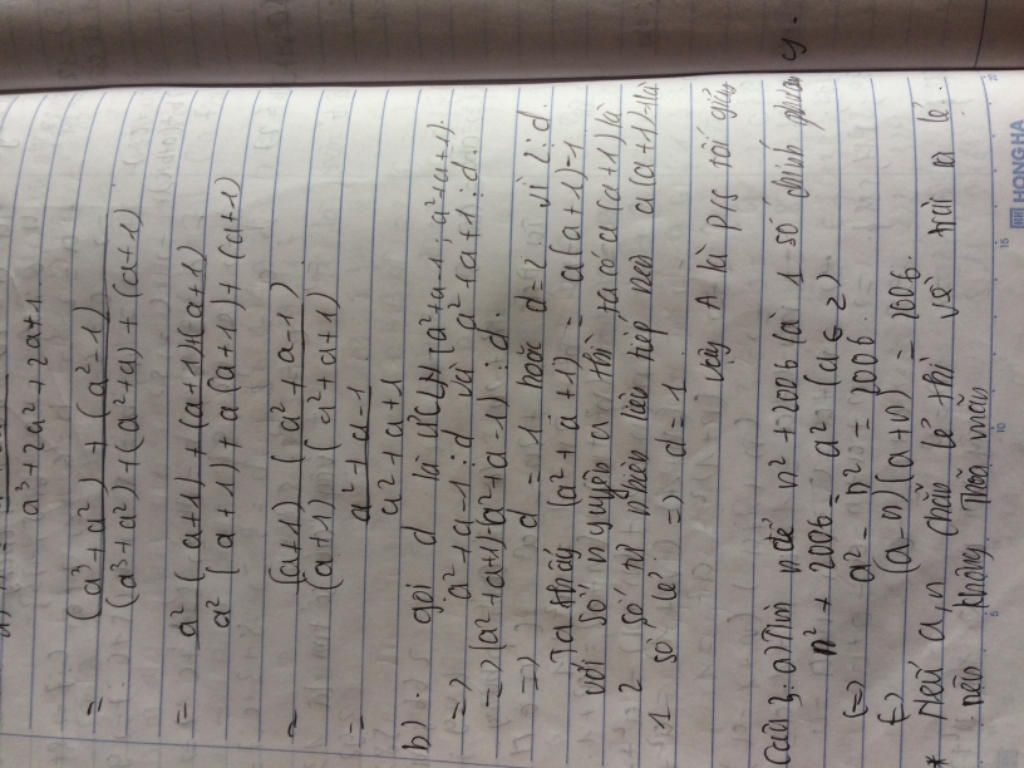 a³ + 2a² + 2a + 1
= (a³ + a²) + (a² - 1)
(a³ + a²) + (a² + a) + (a + 1)
= a² (a + 1) + (a + 1)(a + 1)
a² (a + 1) + a (a + 1) + (a + 1)
= (a + 1) (a² + a - 1)
(a + 1) (a² + a + 1)
= a² + a - 1
a² + a + 1
b). gọi d là ƯCLN (a² + a - 1, a² + a + 1).
=> a² + a - 1 ⋮ d và a² + a + 1 ⋮ d
=> (a² + a + 1) - (a² + a - 1) ⋮ d.
=> d = 1 hoặc d = 2 vì 2 ⋮ d.
Ta thấy (a² + a + 1) = a (a + 1) - 1
với số nguyên a thì ta có a (a + 1) là
2 số tự nhiên liên tiếp nên a (a + 1) -
1 số lẻ => d = 1
vậy A là p/s tối giản
Câu 3. a) Tìm n để n² + 2006 là 1 số chính phương.
n² + 2006 = a² (a ∈ Z)
<=> a² - n² = 2006
<=> (a - n) (a + n) = 2006.
* Nếu a, n chẵn lẻ thì vế trái là lẻ
nên không Thỏa mãn
HONG HA
5
10
15
20